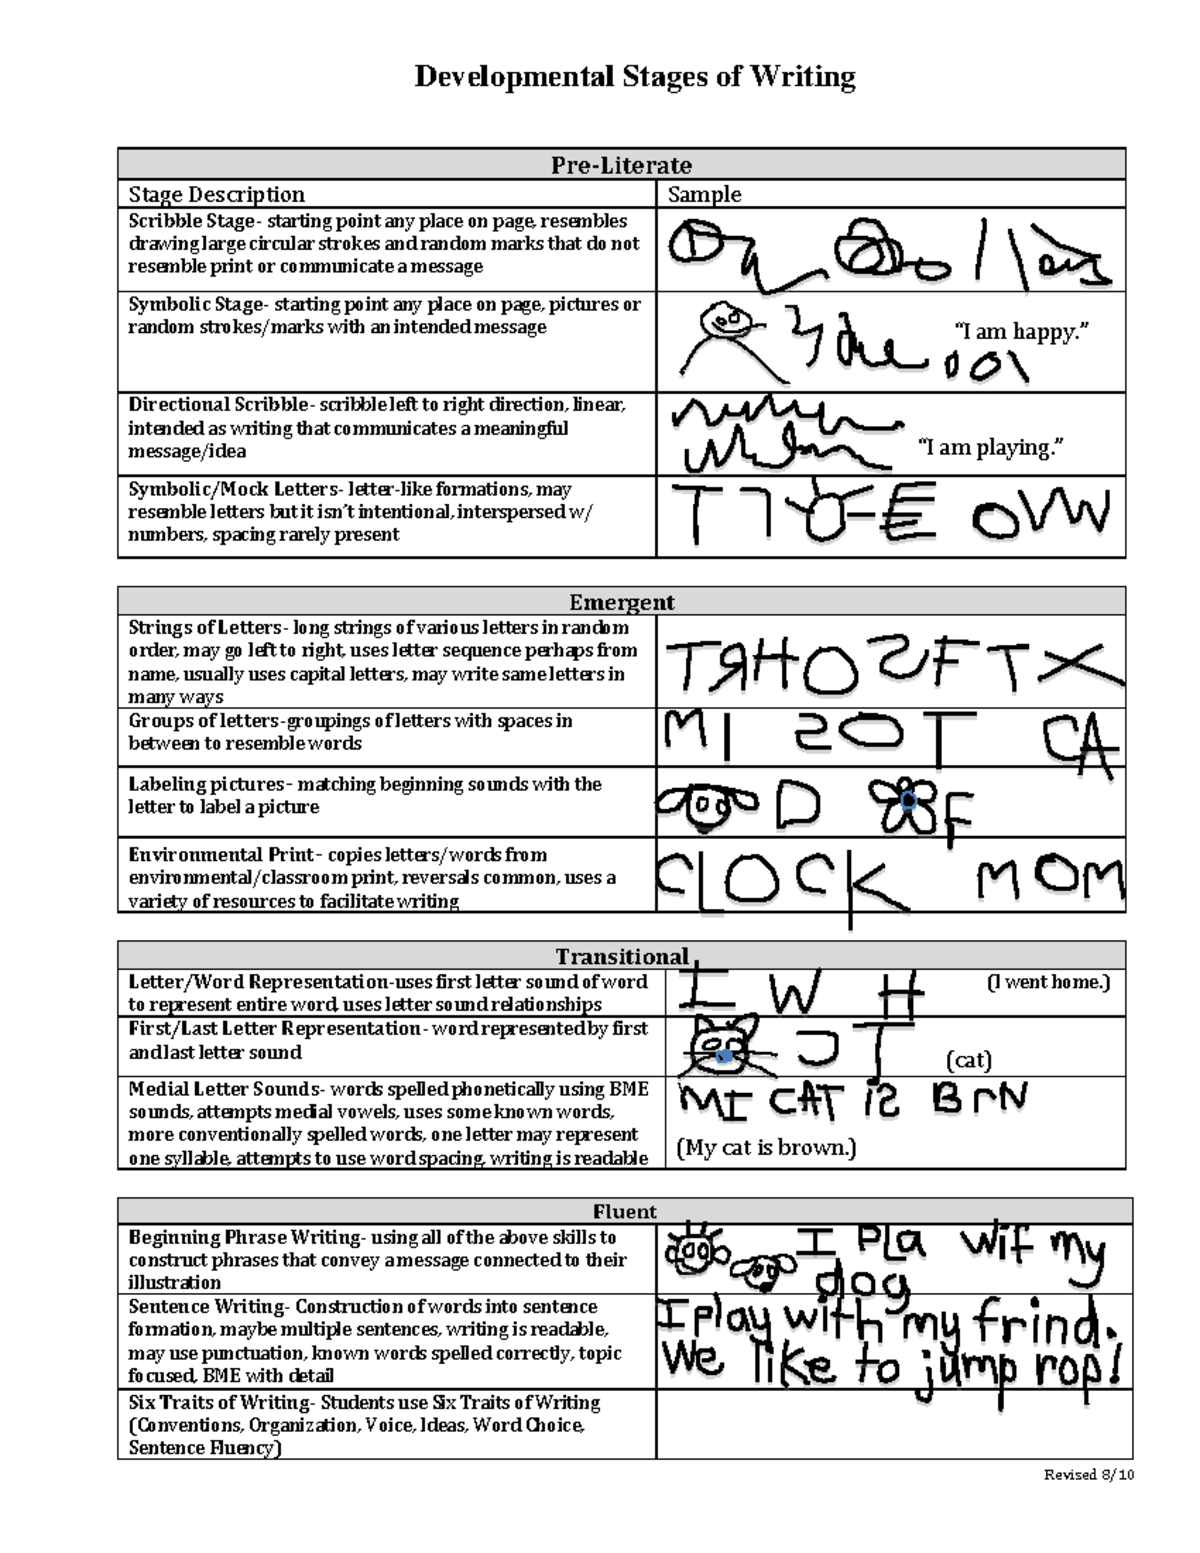 Developmental Stages of Writing
Pre-Literate
Stage Description
Sample
Scribble Stage- starting point any place on page, resembles
drawing large circular strokes and random marks that do not
resemble print or communicate a message
Symbolic Stage- starting point any place on page, pictures or
random strokes/marks with an intended message
“I am happy.”
Directional Scribble- scribble left to right direction, linear,
intended as writing that communicates a meaningful
message/idea
“I am playing.”
Symbolic/Mock Letters- letter-like formations, may
resemble letters but it isn’t intentional, interspersed w/
numbers, spacing rarely present
Emergent
Strings of Letters- long strings of various letters in random
order, may go left to right, uses letter sequence perhaps from
name, usually uses capital letters, may write same letters in
many ways
TRHOSFTX
Groups of letters-groupings of letters with spaces in
between to resemble words
MI SOT CA
Labeling pictures- matching beginning sounds with the
letter to label a picture
D F
Environmental Print- copies letters/words from
environmental/classroom print, reversals common, uses a
variety of resources to facilitate writing
CLOCK MOM
Transitional
Letter/Word Representation-uses first letter sound of word
to represent entire word, uses letter sound relationships
I W H (I went home.)
First/Last Letter Representation- word represented by first
and last letter sound
T
(cat)
Medial Letter Sounds- words spelled phonetically using BME
sounds, attempts medial vowels, uses some known words,
more conventionally spelled words, one letter may represent
one syllable, attempts to use word spacing, writing is readable
MI CAT is BrN
(My cat is brown.)
Fluent
Beginning Phrase Writing- using all of the above skills to
construct phrases that convey a message connected to their
illustration
I Pla wif my
dog
Sentence Writing- Construction of words into sentence
formation, maybe multiple sentences, writing is readable,
may use punctuation, known words spelled correctly, topic
focused, BME with detail
I play with my frind.
We like to jump rop!
Six Traits of Writing- Students use Six Traits of Writing
(Conventions, Organization, Voice, Ideas, Word Choice,
Sentence Fluency)
Revised 8/10